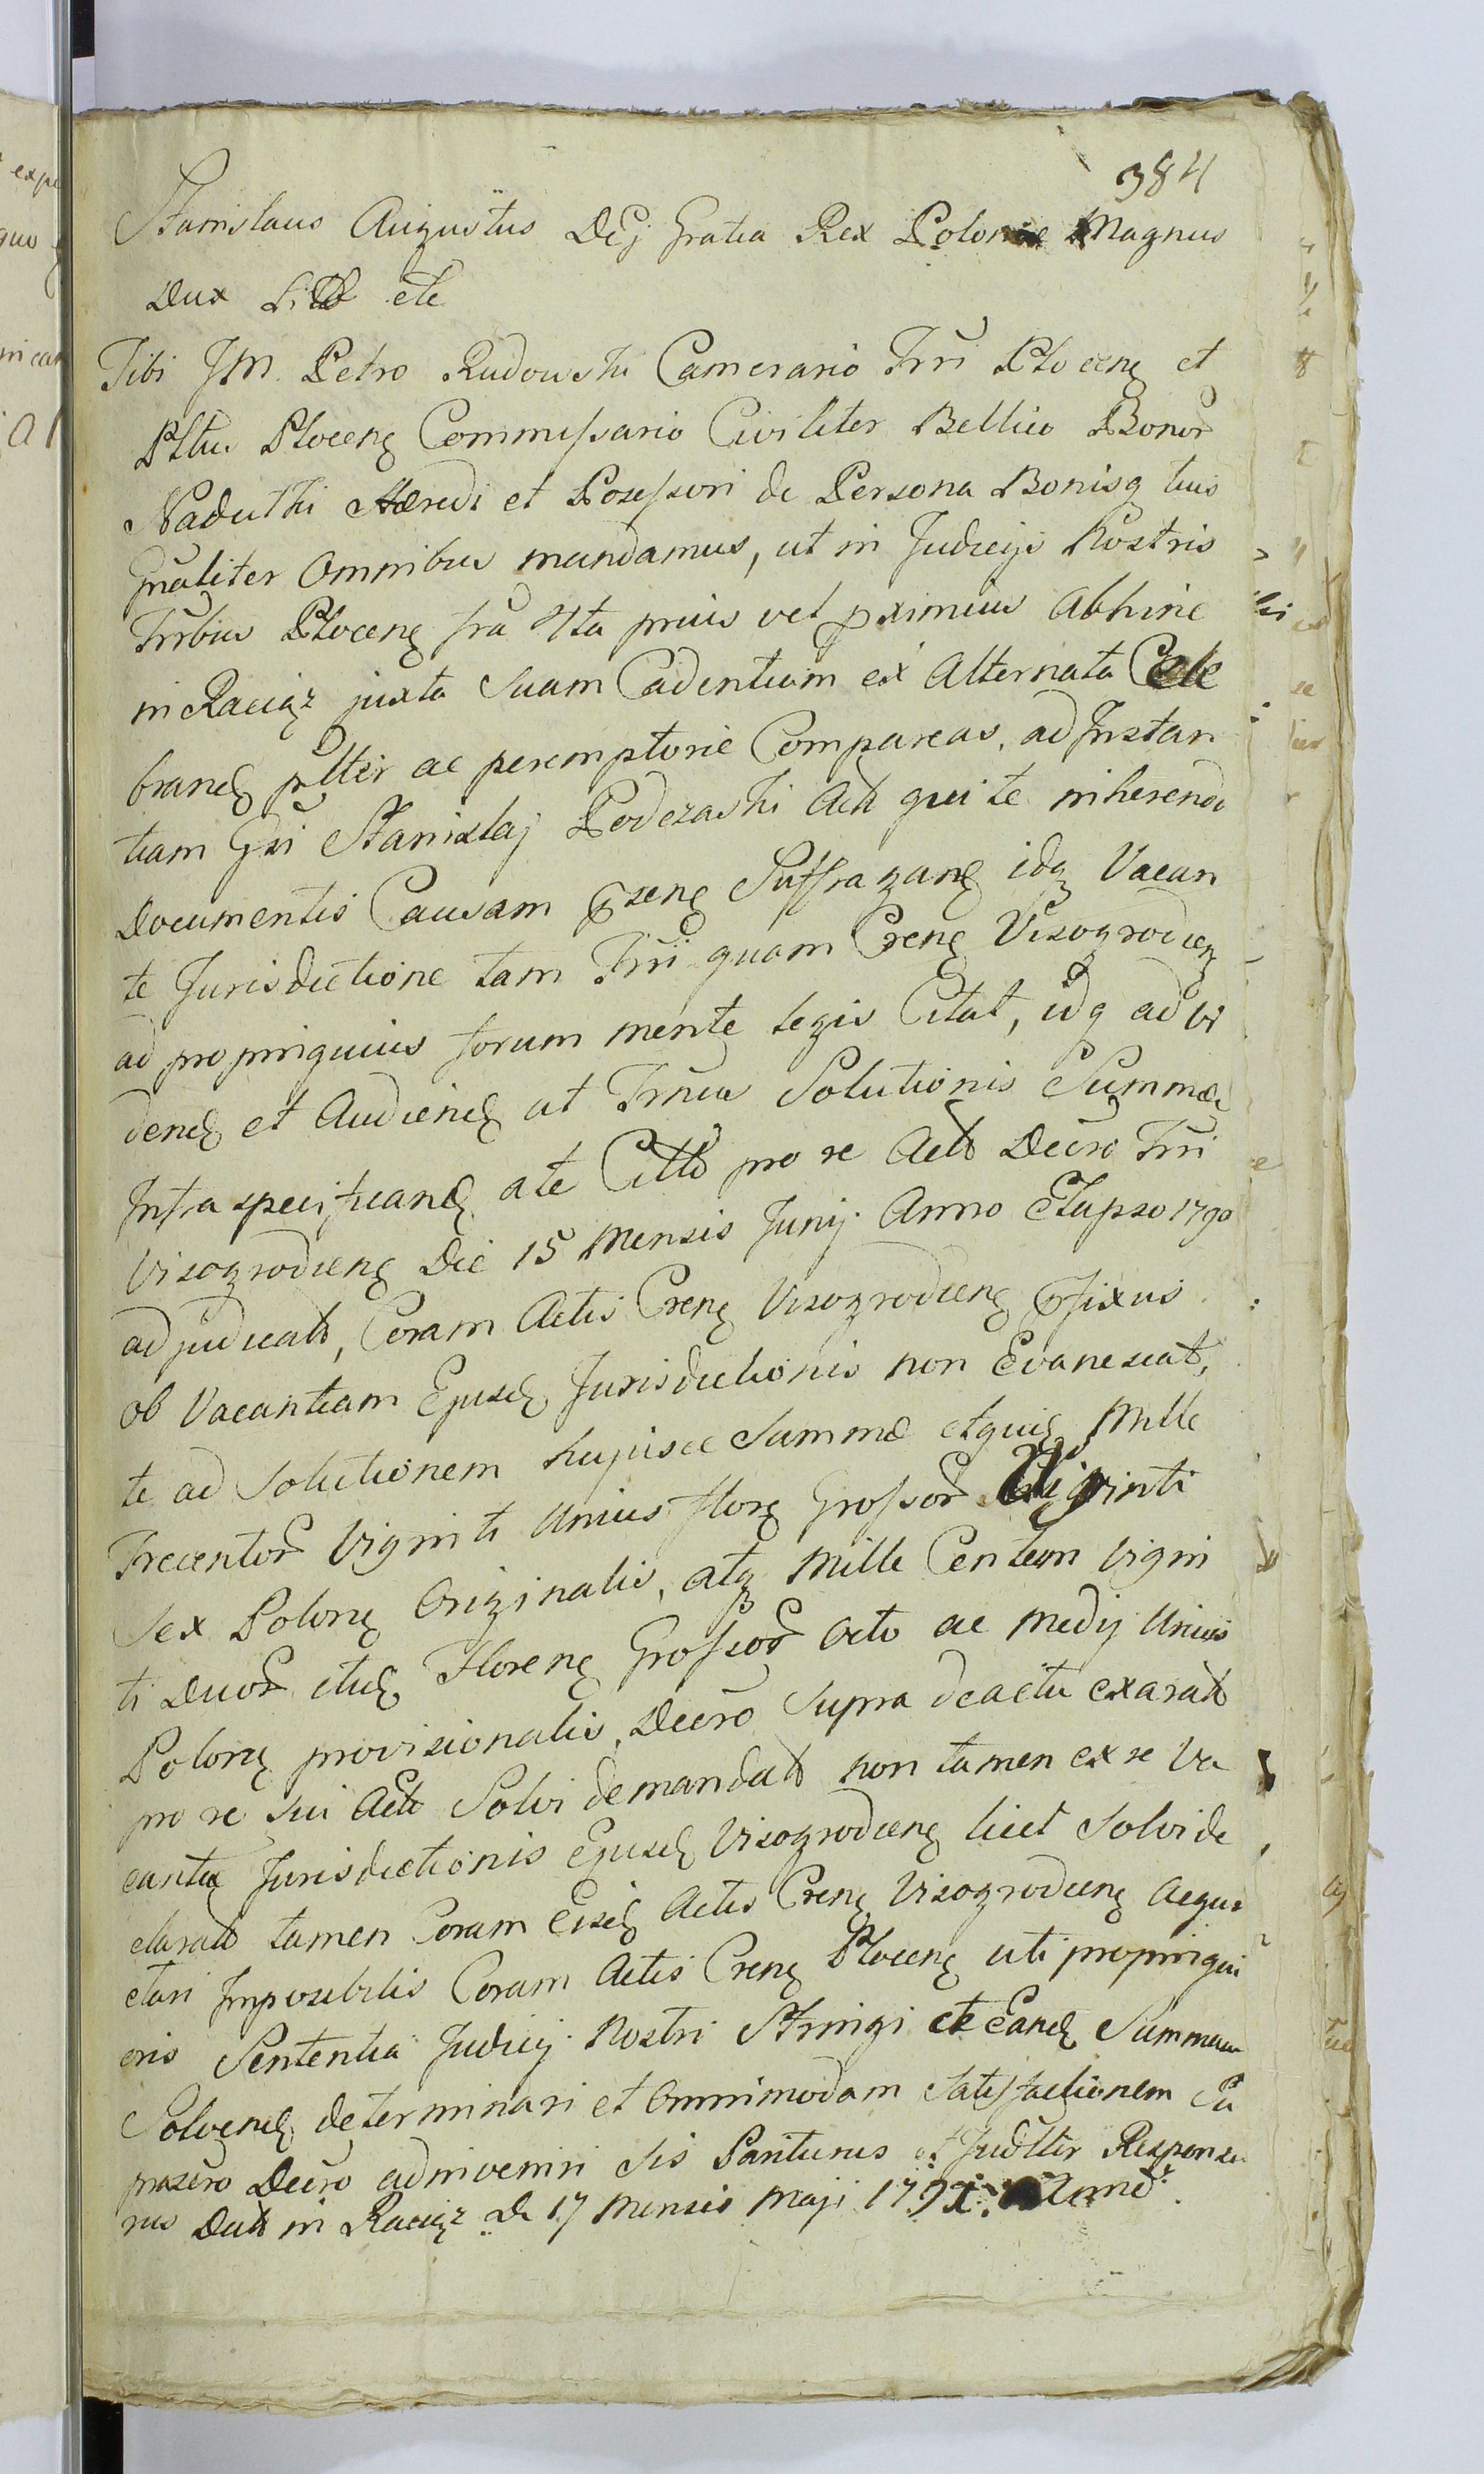 384
Stanislaus Augustus Dej Gratia Rex Polonie Magnus
Dux Litt etc
Tibi JM. Petro Rudowski Camerario Trri Plocenę et
Pltus Plocenę Commissario Civiliter Bellico Bonor
Naduthi Hæredi et Posessori de Persona Bonisq tuis
Gnaliter Omnibus mandamus, ut in Judicijs Nostris
Trrbus Plocenę fra 4ta prius vel pximius abhinc
in Raciąz juxta suam Cadentiam ex Alternata Cele
brand pltter ac peremptorie Compareas, ad Instan
tiam Gsi Stanislaj Podczaski Act qui te inherendo
Documentis Causam psenę Suffragand idq Vacan
te Jurisdictione tam Trri quam Crenę Visogrodienę
ad propinquius forum mente legis Citat, idq ad Vi
dend et Audiend ut Trnus Solutionis Summæ
Infra specificand a te Citto pro re Acto Decro Trri
Visogrodienę Die 15 Mensis Junij Anno Elapso 1790
adjudicato, Coram Actis Crenę Visogrodienę pfixus
ob Vacantiam Ejusd Jurisdictionis non Evanescat,
te ad solutionem hujusce Summæ etquid Mille
Trecentor Viginti Unius florę Grossor Viginti
Sex Polonę Originalis, atq Mille Centum Vigin
ti Duor itid Florenę Grossor Octo ac Medij Unius
Polonę provisionalis, Decro Supra de actu exarato
pro re sui Acto Solvi demandato non tamen ex re Va
cantiæ Jurisdictionis Ejusd Visogrodienę licet Solvi de
clarato tamen Coram Eisd Actis Crenę Visogrodienę Acqui
etari Impossibilis Coram Actis Crenę Plocenę uti propinqui
oris Sententia Judicij Nostri Stringi et Eand Summam
Solvend determinari et Omnimodam Satisfactionem
prasero Decro adinveniri Sis Pariturus et Judltter Responsu
rus Dato in Raciąz D 17 Mensis Maji 1791.